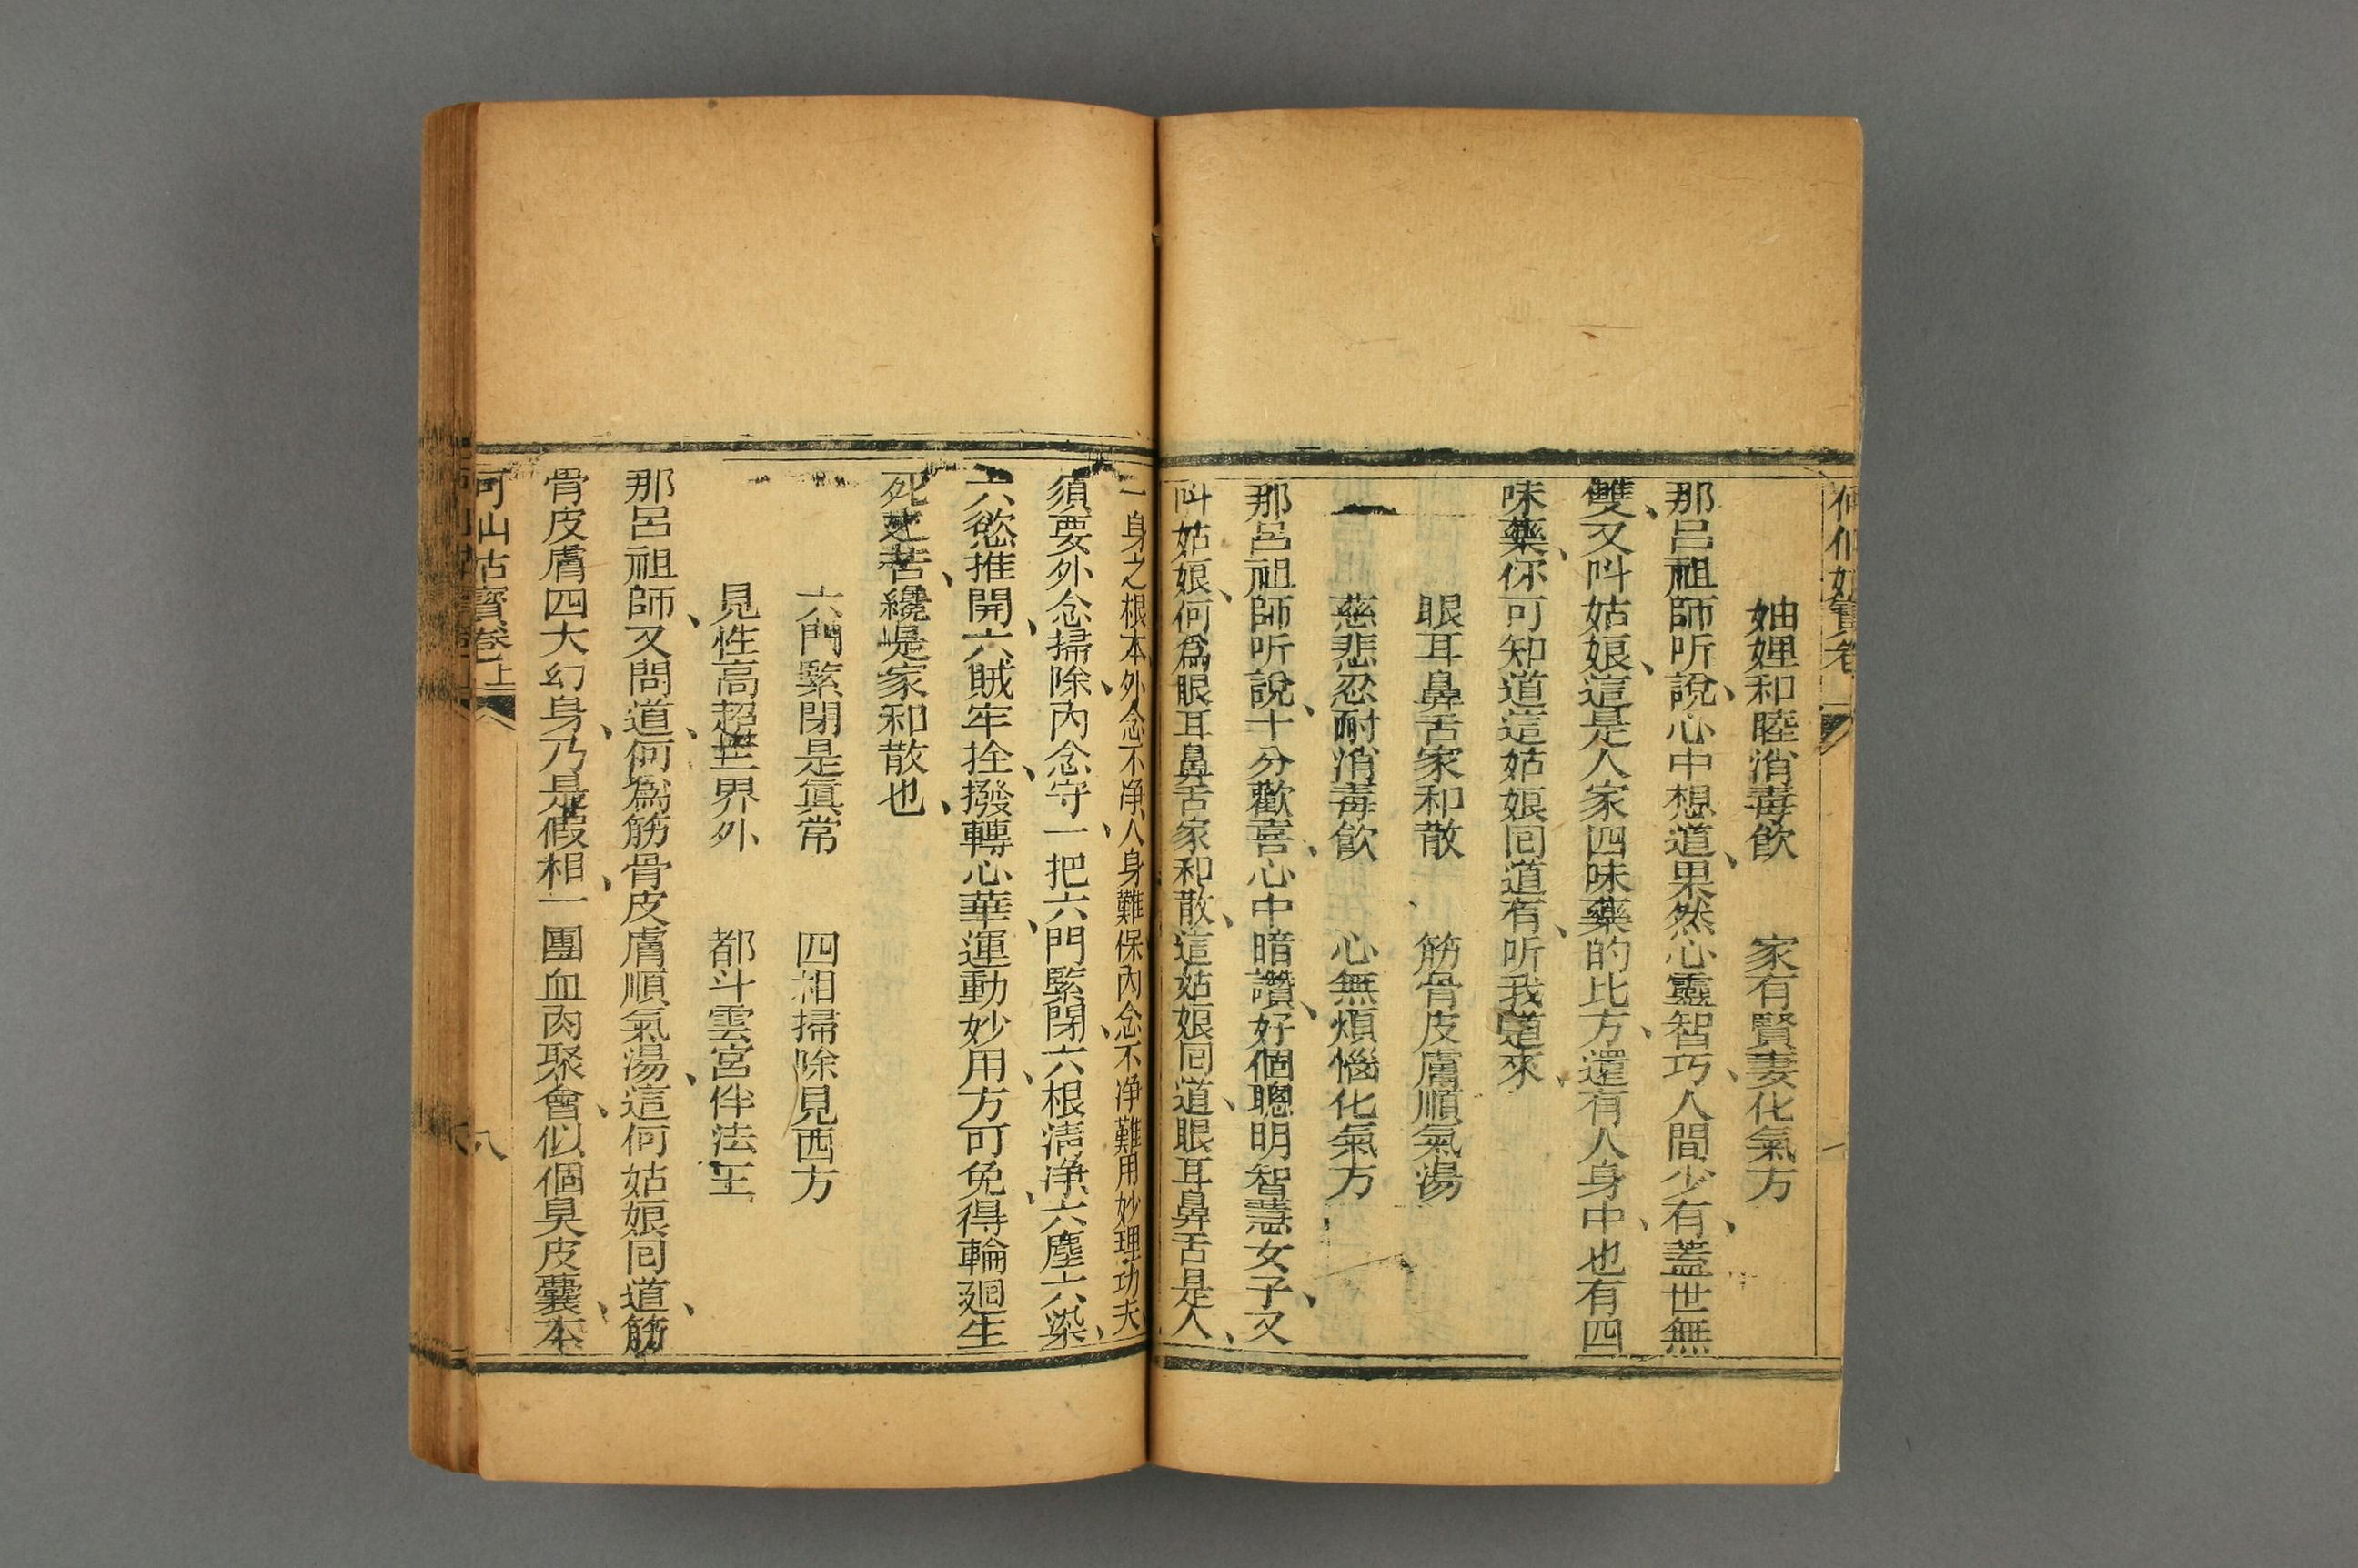 何仙姑寶卷
妯娌和睦消毒飲　家有賢妻化氣方
那呂祖師听說、心中想道、果然心靈智巧、人間少有、蓋世無
雙、又叫姑娘、這是人家四味藥的比方、還有人身中、也有四
味藥、你可知道這姑娘囘道有、听我道來、
眼耳鼻舌家和散　筋骨皮膚順氣湯
慈悲忍耐消毒飲　心無煩惱化氣方
那呂祖師听說、十分歡喜、心中暗讚、好個聰明智慧女子、又
叫姑娘、何爲眼耳鼻舌家和散、這姑娘囘道、眼耳鼻舌是人、
一身之根本外念不净人身難保內念不净難用妙理功夫
須要外念掃除、內念守一、把六門緊閉、六根淸净、六塵六染、
六慾推開、六賊牢拴、撥轉心華、運動妙用、方可免得輪廻生
死之苦、纔是家和散也、
六門緊閉是眞常　四相掃除見西方
見性高超世界外　都斗雲宮伴法王
那呂祖師、又問道、何爲筋骨皮膚順氣湯、這何姑娘囘道、筋
骨皮膚四大幻身、乃是假相、一團血肉聚會、似個臭皮囊、本
何仙姑寶卷上
八